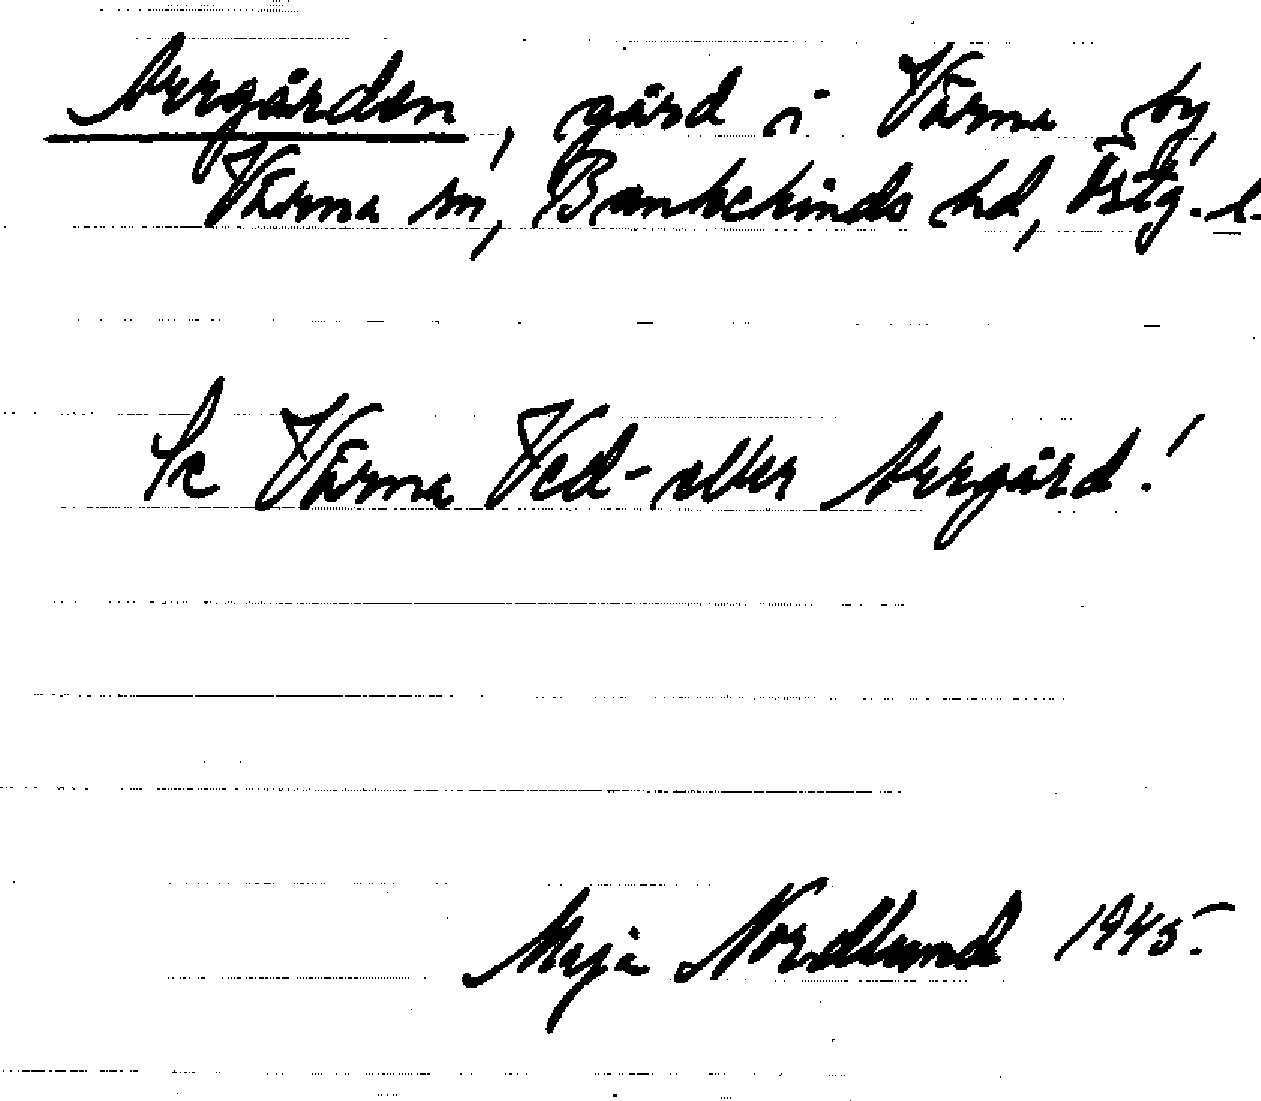 Norrgården, gård i Värna by,
Värna sn, Bankekinds hd, Östg. l.
Se Värna Ved- eller Norrgård!
Maja Nordlund 1945.